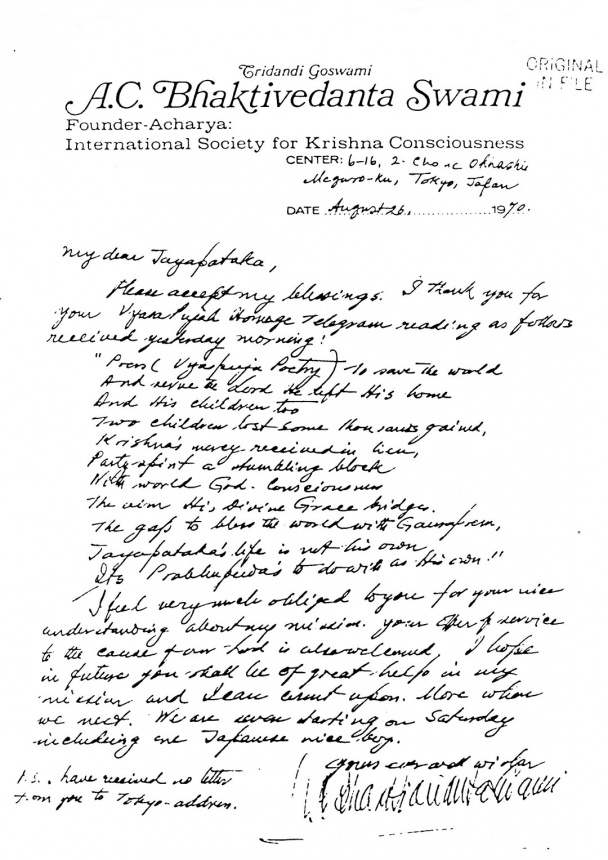 Tridandi Goswami
A.C. Bhaktivedanta Swami
ORIGINAL
IN FILE
Founder-Acharya:
International Society for Krishna Consciousness
CENTER: 6-16, 2-Chome Ohhashi
Meguro-Ku, Tokyo, Japan
DATE August 26, 1970.
My dear Jayapataka,
Please accept my blessings. I thank you for
your Vyasa Pujah Homage Telegram reading as follows
received yesterday morning!
"Poem (Vyaspuja Poetry) To save the world
And serve the Lord He left His home
And His children too
Two children lost some thousands gained,
Krishna's mercy received in lieu,
Party-spirit a stumbling block
With world God-Consciousness
The aim His Divine Grace bridges.
The gaps to bless the world with Gauraprem,
Jayapataka's life is not his own
Its Prabhupada's to do with as His own!"
I feel very much obliged to you for your nice
understanding about my mission. Your offer of service
to the cause of our Lord is also welcomed. I hope
in future you shall be of great help in my
mission and I can count upon. More when
we meet. We are seven starting on Saturday
including one Japanese nice boy.
Yours ever well wisher
A.C. Bhaktivedanta Swami
P.S. I have received no letter
from you to Tokyo-address.